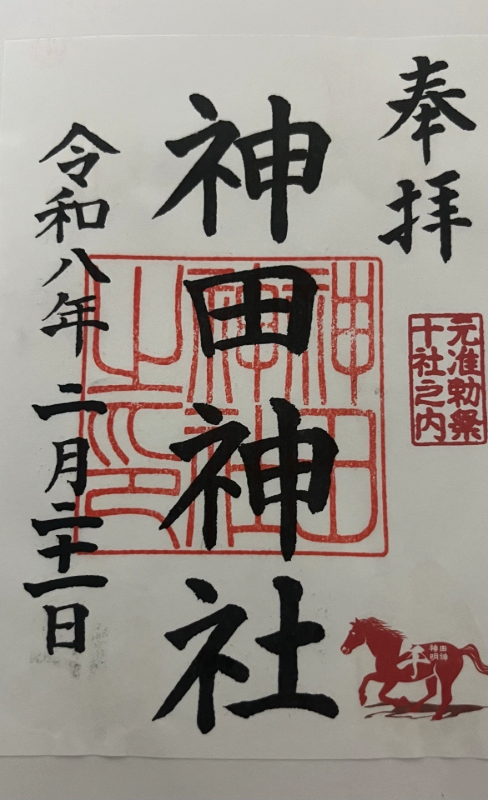 奉拝
元准勅祭
十社之内
神田神社
神田神社之印
神田明神
午
令和八年二月二十一日